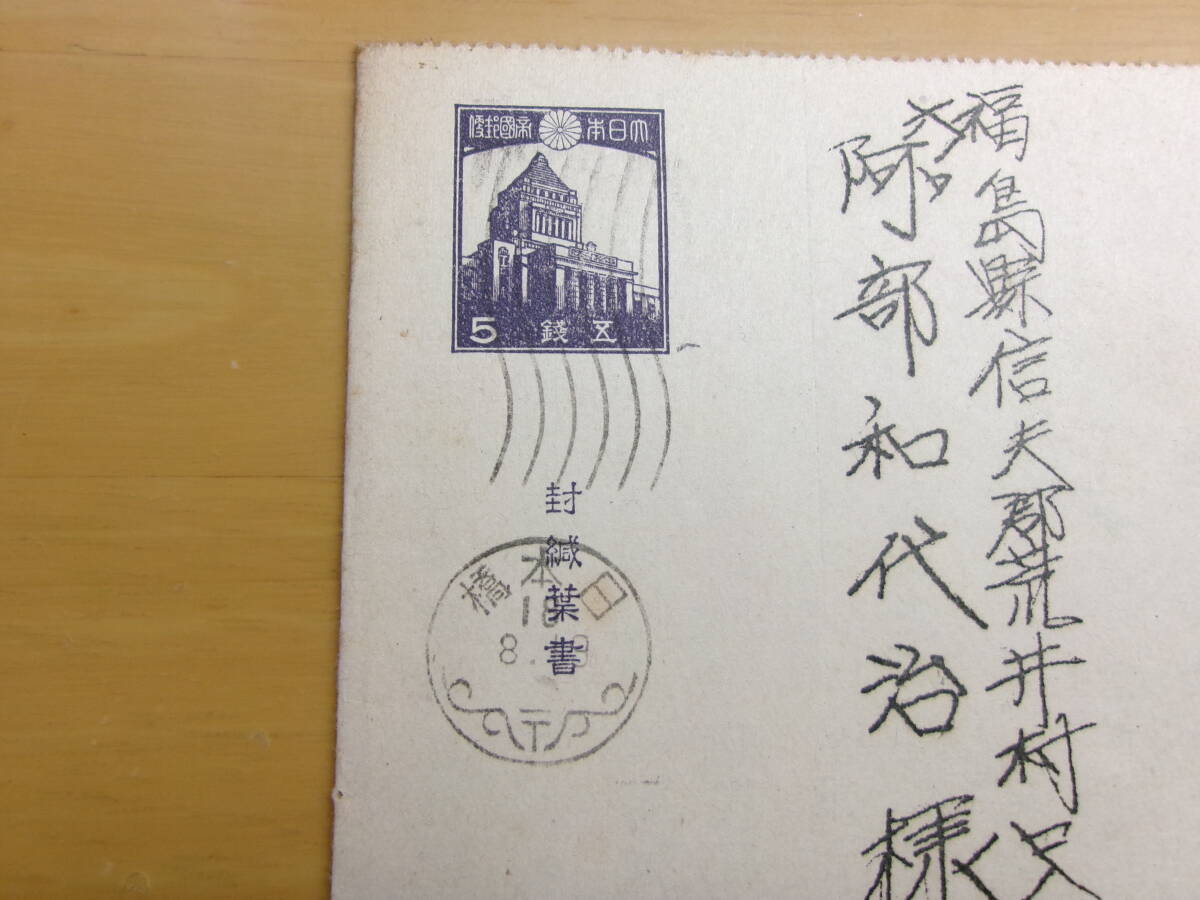 大日本帝國郵便
5 錢 五
封緘葉書
日本橋
16
8
〒
福島縣信夫郡荒井村
阿部和代治様